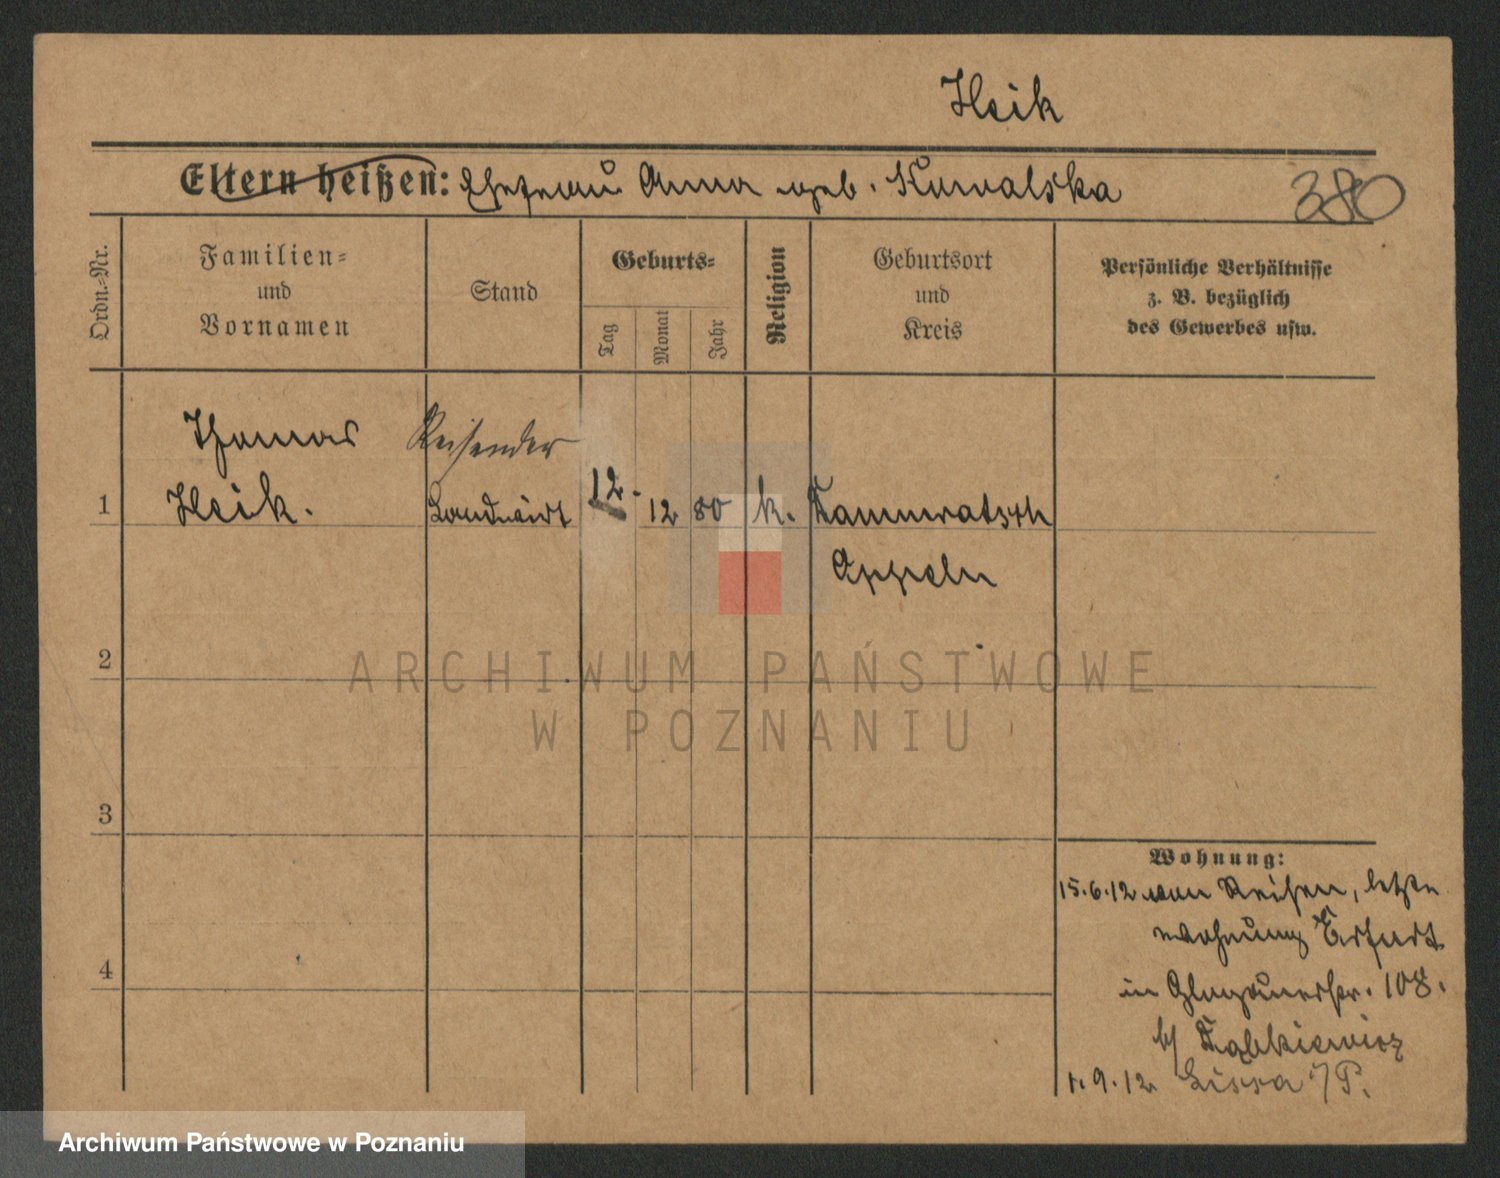 Heik
Eltern heißen: Ehefrau Anna geb. Kowalska
380
Ordn.-Nr.
Familien-
und
Vornamen
Stand
Geburts-
Tag
Monat
Jahr
Religion
Geburtsort
und
Kreis
Persönliche Verhältnisse
z. B. bezüglich
des Gewerbes usw.
Thomas Reisender
1 Heik. Landwirt 12. 12 80 k.
Oppeln
2
3
4
ARCHIWUM PAŃSTWOWE
W POZNANIU
Wohnung:
15.6.12 von Reisen, letzte
Wohnung Erfurt
in Glogauerstr. 108.
b/
1.9.12 Lissa i/P.
Archiwum Państwowe w Poznaniu